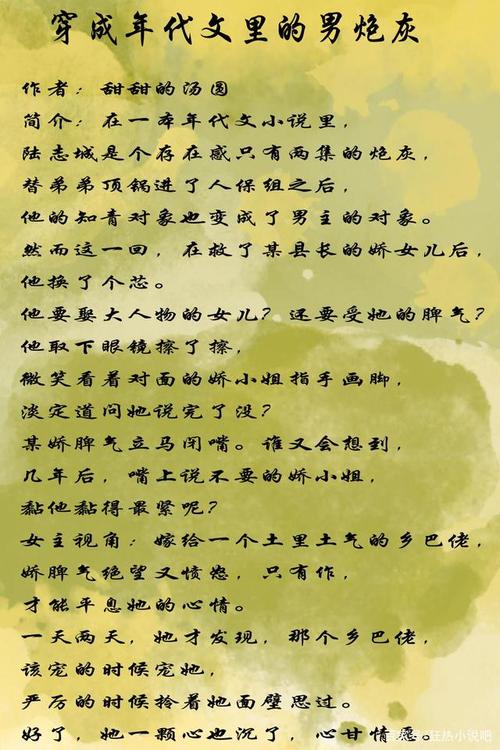 穿成年代文里的男炮灰
作者：甜甜的汤圆
简介：在一本年代文小说里，
陆志城是个存在感只有两集的炮灰，
替弟弟顶锅进了人保组之后，
他的知青对象也变成了男主的对象。
然而这一回，在救了某县长的娇女儿后，
他换了个芯。
他要娶大人物的女儿？还要受她的脾气？
他取下眼镜擦了擦，
微笑看着对面的娇小姐指手画脚，
淡定道问她说完了没？
某娇脾气立马闭嘴。谁又会想到，
几年后，嘴上说不要的娇小姐，
黏他黏得最紧呢？
女主视角：嫁给一个土里土气的乡巴佬，
娇脾气绝望又愤怨，只有作，
才能平息她的心情。
一天两天，她才发现，那个乡巴佬，
该宠的时候宠她，
严厉的时候拎着她面壁思过。
好了，她一颗心也沉了，心甘情愿。
狂热小说吧